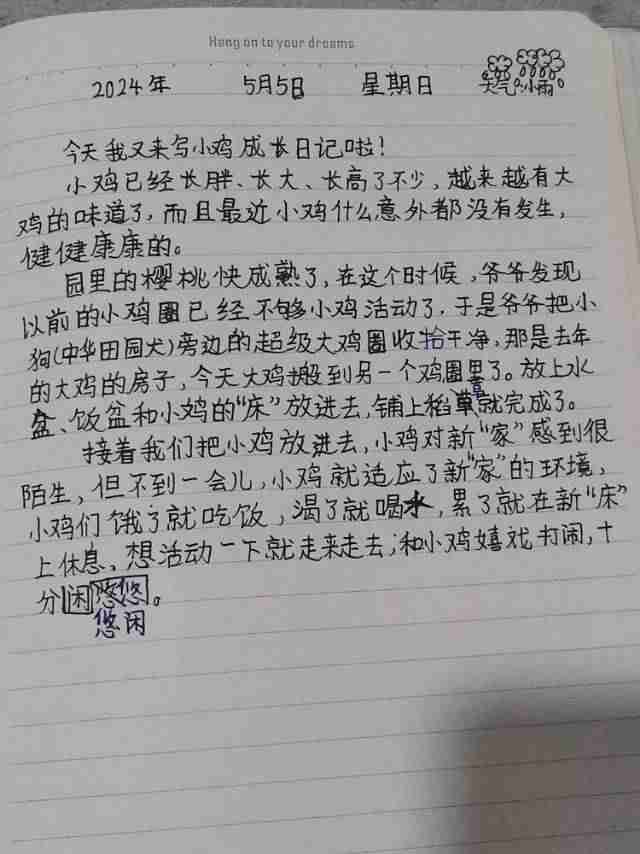 Hang on to your dreams
2024年 5月5日 星期日 天气:小雨
今天我又来写小鸡成长日记啦!
小鸡已经长胖、长大、长高了不少,越来越有大
鸡的味道了,而且最近小鸡什么意外都没有发生,
健健康康的。
园里的樱桃快成熟了,在这个时候,爷爷发现
以前的小鸡圈已经不够小鸡活动了,于是爷爷把小
狗(中华田园犬)旁边的超级大鸡圈收拾干净,那是去年
的大鸡的房子,今天大鸡搬到另一个鸡圈里了。放上水
盆、饭盆和小鸡的“床”放进去,铺上稻草就完成了。
接着我们把小鸡放进去,小鸡对新“家”感到很
陌生,但不到一会儿,小鸡就适应了新“家”的环境,
小鸡们饿了就吃饭,渴了就喝水,累了就在新“床”
上休息、想活动一下就走来走去,和小鸡嬉戏打闹,十
分闲悠悠。
悠闲